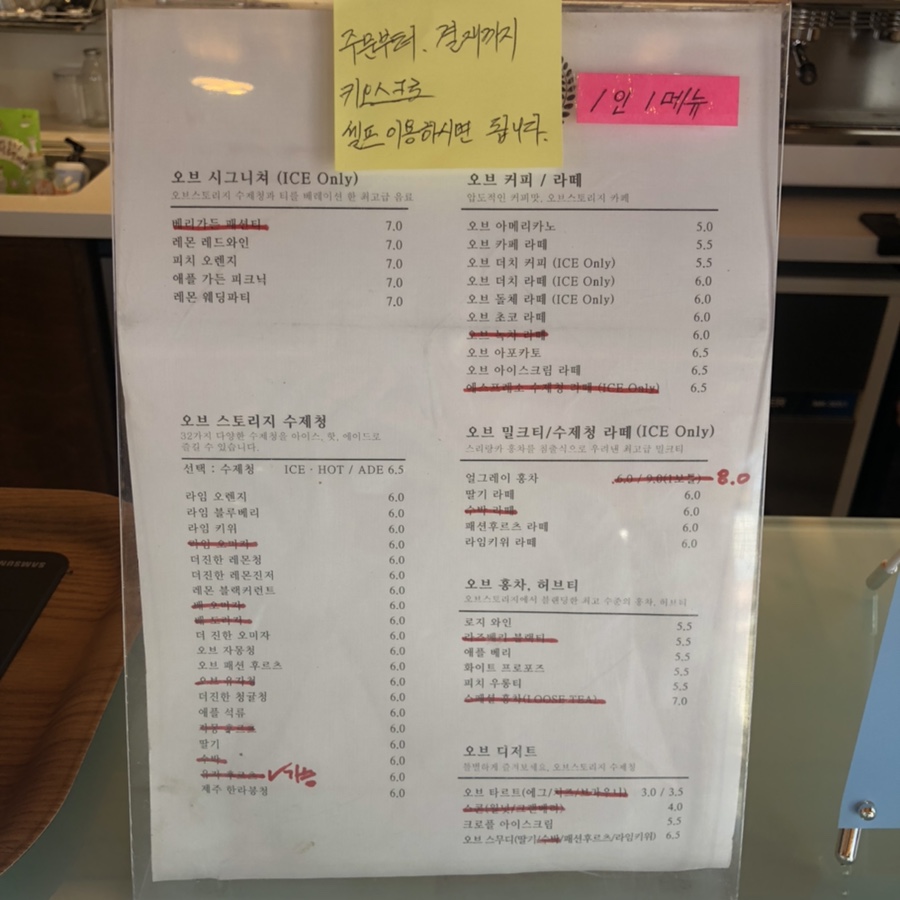 주문부터. 결제까지
키오스크로
셀프 이용하시면 됩니다.
1인 1메뉴
오브 시그니쳐 (ICE Only)
오브스토리지 수제청과 티를 베레이션 한 최고급 음료
베리가든 패션티 7.0
레몬 레드와인 7.0
피치 오렌지 7.0
애플 가든 피크닉 7.0
레몬 웨딩파티 7.0
오브 스토리지 수제청
32가지 다양한 수제청을 아이스, 핫, 에이드로
즐길 수 있습니다.
선택 : 수제청 ICE · HOT / ADE 6.5
라임 오렌지 6.0
라임 블루베리 6.0
라임 키위 6.0
라임 오미자 6.0
더진한 레몬청 6.0
더진한 레몬진저 6.0
레몬 블랙커런트 6.0
배 오미자 6.0
배 도라지 6.0
더 진한 오미자 6.0
오브 자몽청 6.0
오브 패션 후르츠 6.0
오브 유자청 6.0
더진한 청귤청 6.0
애플 석류 6.0
자몽 6.0
딸기 6.0
수박 6.0
유자 후르츠 가능 6.0
제주 한라봉청 6.0
오브 커피 / 라떼
압도적인 커피맛, 오브스토리지 카페
오브 아메리카노 5.0
오브 카페 라떼 5.5
오브 더치 커피 (ICE Only) 5.5
오브 더치 라떼 (ICE Only) 6.0
오브 돌체 라떼 (ICE Only) 6.0
오브 초코 라떼 6.0
오브 녹차 라떼 6.0
오브 아포카토 6.5
오브 아이스크림 라떼 6.5
에스프레소 수제청 라떼 (ICE Only) 6.5
오브 밀크티/수제청 라떼 (ICE Only)
스리랑카 홍차를 침출식으로 우려낸 최고급 밀크티
얼그레이 홍차 6.0 / 9.0(1보틀) 8.0
딸기 라떼 6.0
수박 라떼 6.0
패션후르츠 라떼 6.0
라임키위 라떼 6.0
오브 홍차, 허브티
오브스토리지에서 블랜딩한 최고 수준의 홍차, 허브티
로지 와인 5.5
라즈베리 블랙티 5.5
애플 베리 5.5
화이트 프로포즈 5.5
피치 우롱티 5.5
스페셜 홍차(LOOSE TEA) 7.0
오브 디저트
특별하게 즐겨보세요, 오브스토리지 수제청
오브 타르트(에그/치즈/브라우니) 3.0 / 3.5
스콘(월넛/크랜베리) 4.0
크로플 아이스크림 5.5
오브 스무디(딸기/수박/패션후르츠/라임키위) 6.5
SAMSUNG